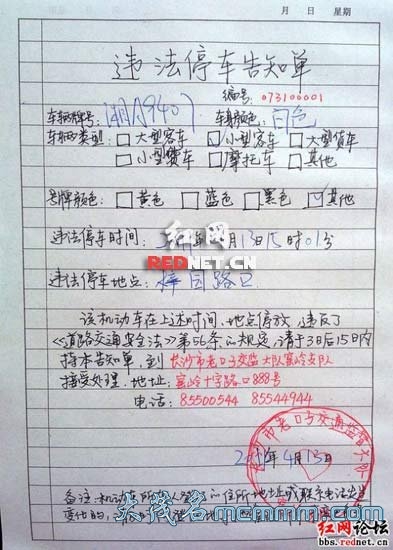 月 日 星期
违法停车告知单
编号：073100001
车辆牌号：湘A9407 车身颜色：白色
车辆类型：□大型客车 □小型客车 □大型货车
□小型货车 □摩托车 □其他
号牌颜色：□黄色 □蓝色 □黑色 ☑其他
违法停车时间： 年 月13日15时01分
红网
REDNET.CN
违法停车地点：梓园路口
该机动车在上述时间、地点停放，违反了
《道路交通安全法》第56条的规定，请于3日后15日内
持本告知单，到长沙市老口子交监大队蜜岭支队
接受处理，地址：蜜岭十字路口888号
电话：85500544 85544944
市老口子交通监督大队
年4月13日
备注：机动车所有人登记的住所地址或联系电话发生
变化的，
大茂名memmmm.com
红网论坛
bbs.rednet.cn